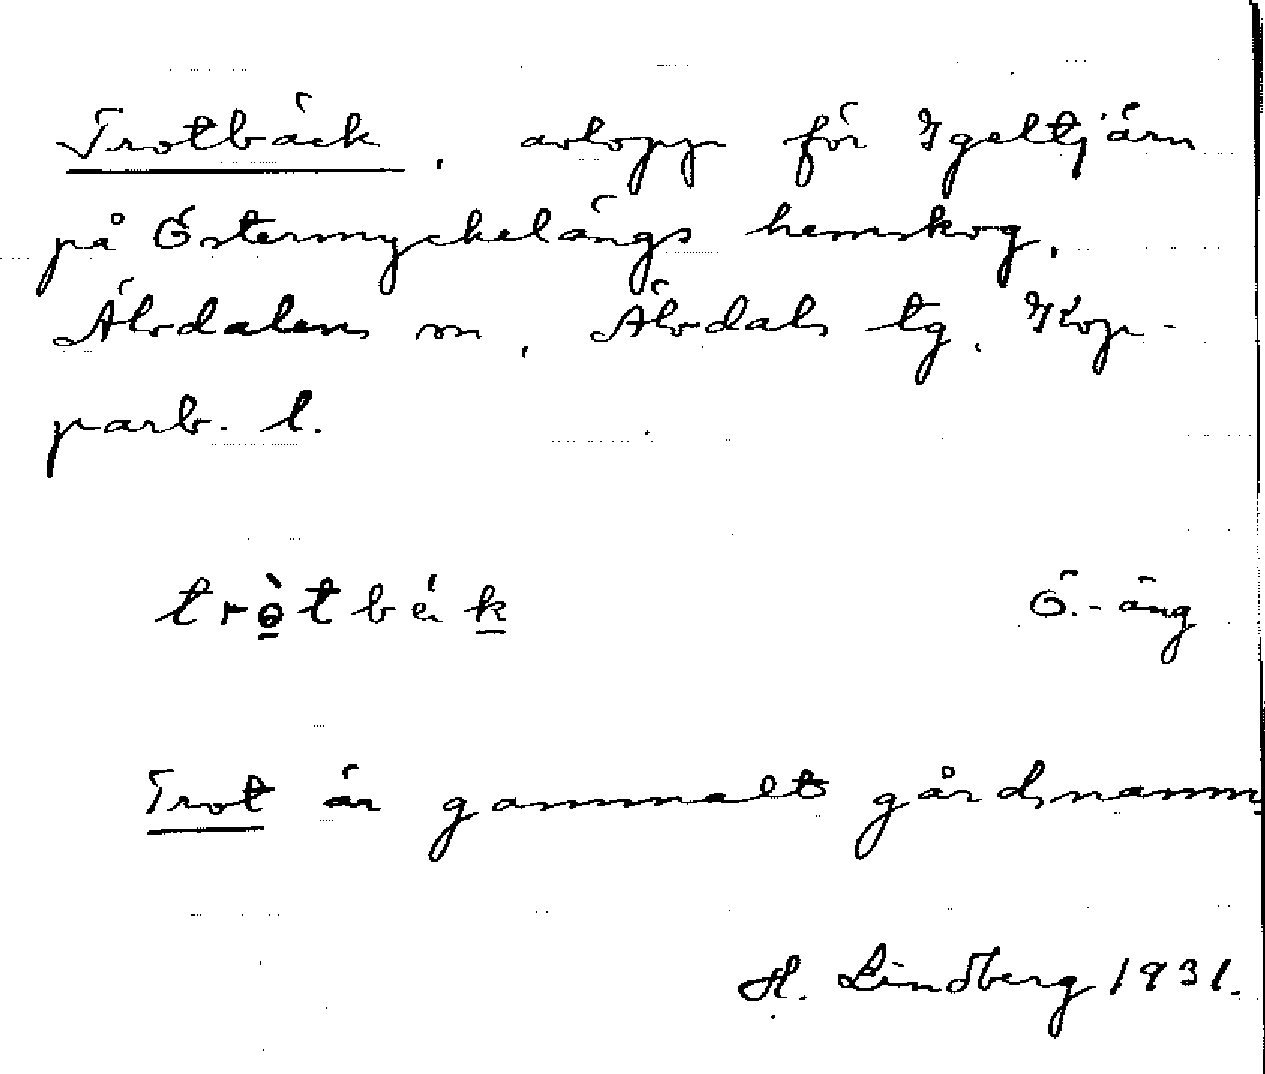 Trotbäck, avlopp för Igeltjärn
på Östermyckelängs hemskog,
Älvdalens sn, Älvdals tg. Kop-
parb. l.
trò̲tbäk̲ Ö.-äng
Trot är gammalt gårdsnamn
H. Lindberg 1931.